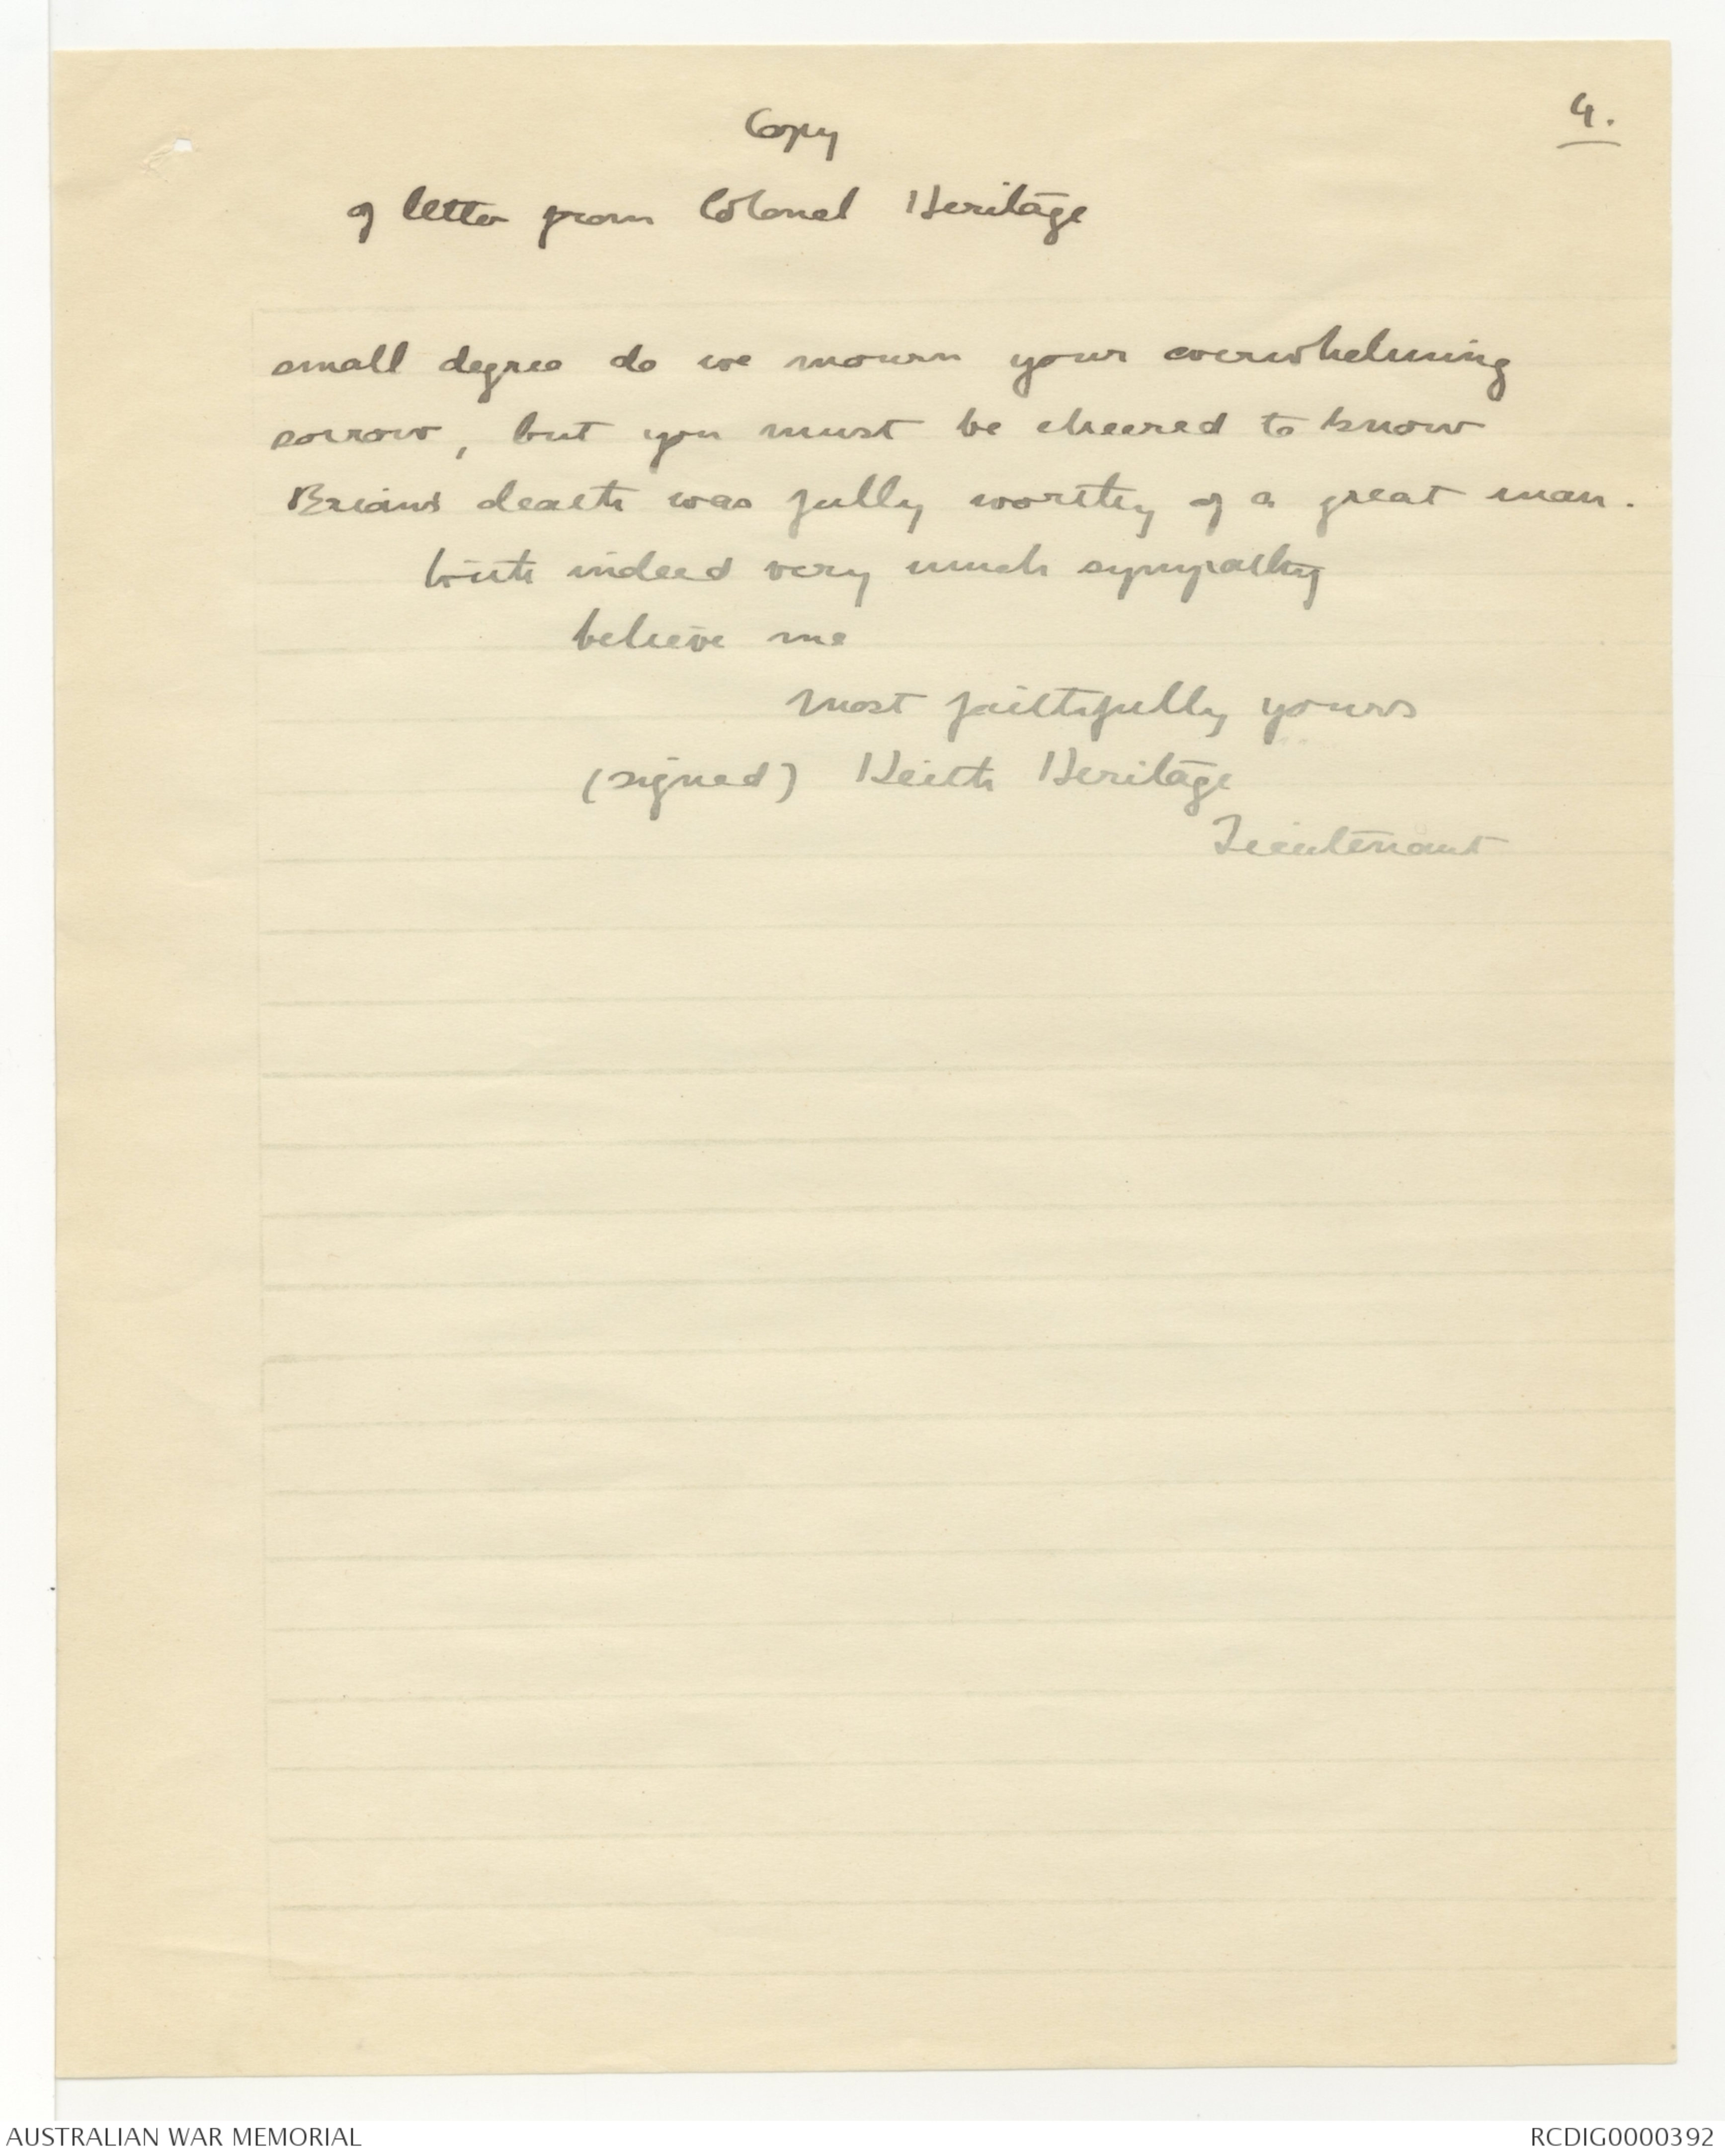 Copy
4.
of letter from Colonel Heritage
small degree do we mourn your overwhelming
sorrow, but you must be cheered to know
Brian's death was fully worthy of a great man.
With indeed very much sympathy
believe me
Most faithfully yours
(signed) Keith Heritage
Lieutenant
AUSTRALIAN WAR MEMORIAL
RCDIG0000392